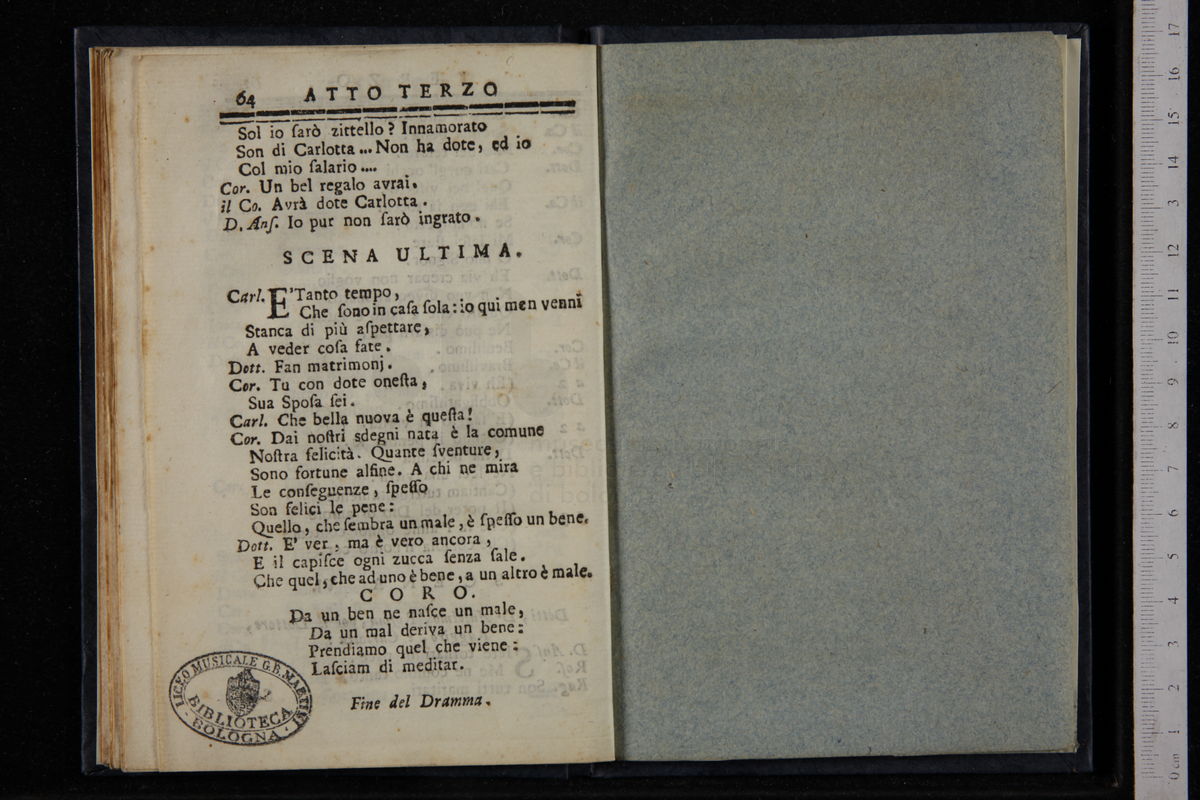 64 ATTO TERZO
Sol io ſarò zittello? Innamorato
Son di Carlotta... Non ha dote, ed io
Col mio ſalario....
Cor. Un bel regalo avrai.
il Co. Avrà dote Carlotta.
D. Anſ. Io pur non ſarò ingrato.
SCENA ULTIMA.
Carl. E'Tanto tempo,
Che ſono in caſa ſola: io qui men venni
Stanca di più aſpettare,
A veder coſa fate.
Dott. Fan matrimonj.
Cor. Tu con dote oneſta,
Sua Spoſa ſei.
Carl. Che bella nuova è queſta!
Cor. Dai noſtri sdegni nata è la comune
Noſtra felicità. Quante ſventure,
Sono fortune alfine. A chi ne mira
Le conſeguenze, ſpeſſo
Son felici le pene:
Quello, che ſembra un male, è ſpeſſo un bene.
Dott. E' ver, ma è vero ancora,
E il capiſce ogni zucca ſenza ſale.
Che quel, che ad uno è bene, a un altro è male.
CORO.
Da un ben ne naſce un male,
Da un mal deriva un bene:
Prendiamo quel che viene:
Laſciam di meditar.
Fine del Dramma.
LICEO MUSICALE G.B. MARTINI
BIBLIOTECA
BOLOGNA
0 cm 1 2 3 4 5 6 7 8 9 10 11 12 13 14 15 16 17